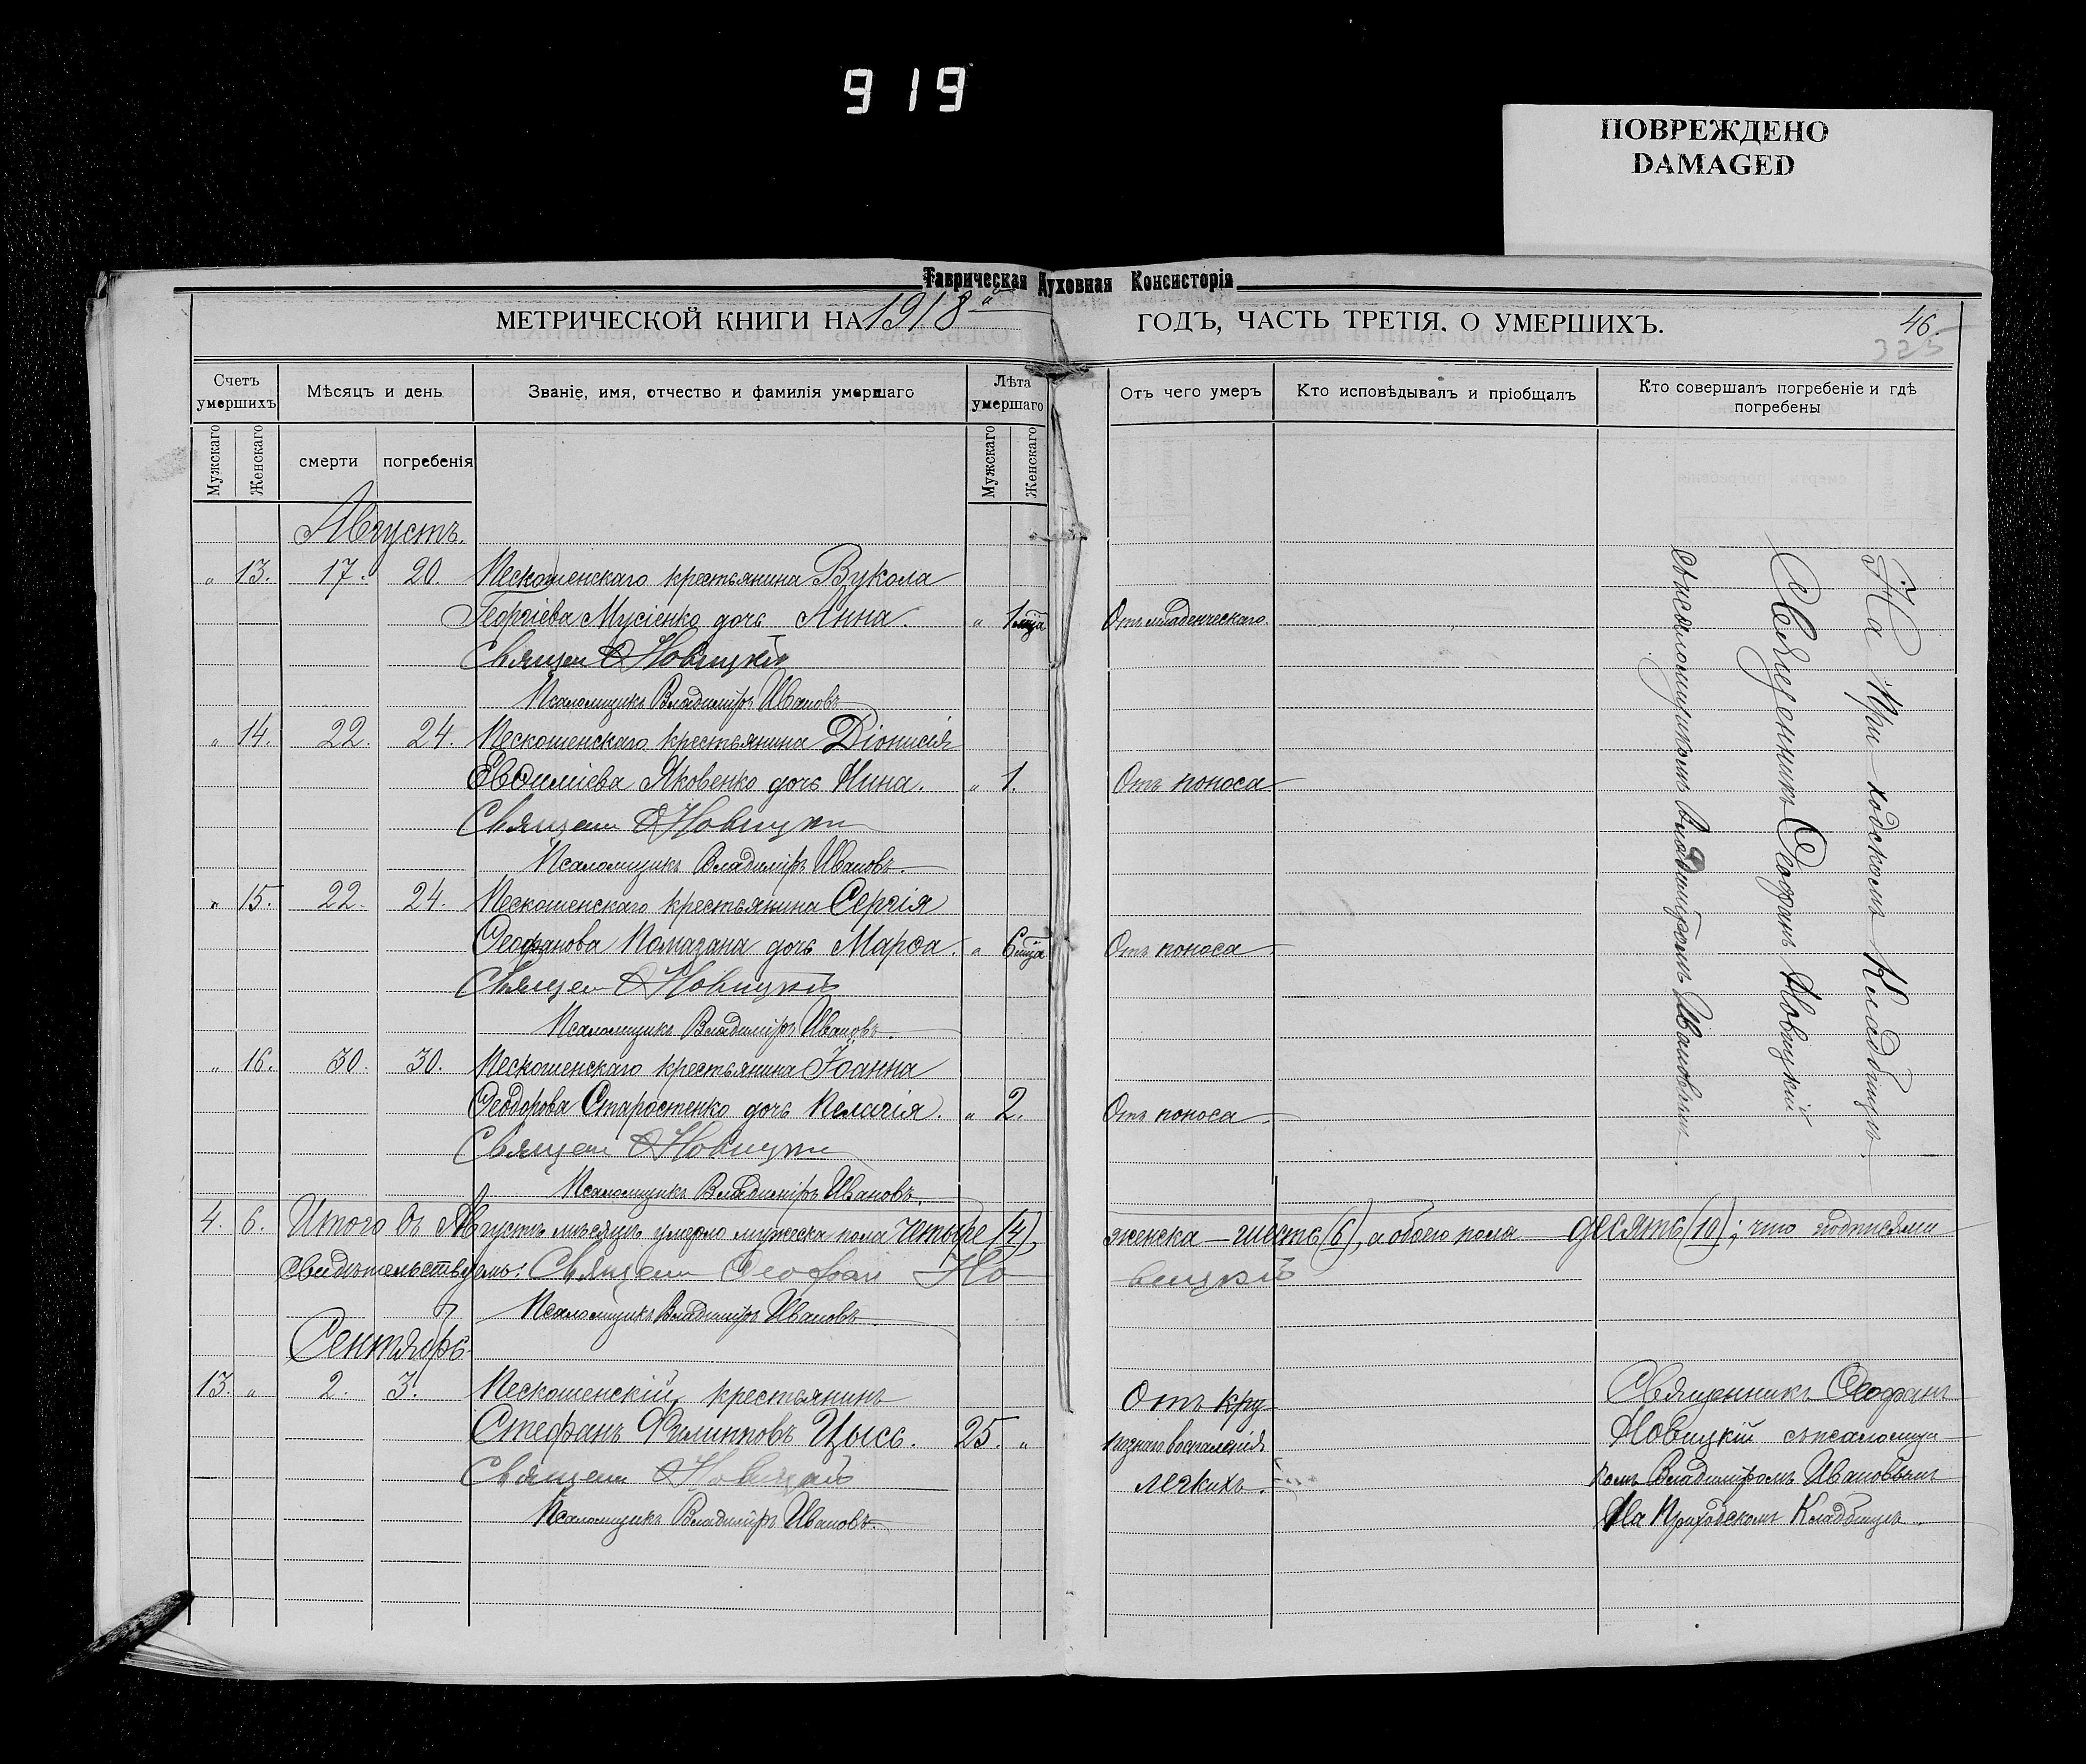 919
ПОВРЕЖДЕНО
DAMAGED
Таврическая Духовная Консисторія
МЕТРИЧЕСКОЙ КНИГИ НА 1918й ГОДЪ, ЧАСТЬ ТРЕТІЯ, О УМЕРШИХЪ.
46.
325
Счетъ умершихъ
Мѣсяцъ и день
Званіе, имя, отчество и фамилія умершаго
Лѣта умершаго
Отъ чего умеръ
Кто исповѣдывалъ и пріобщалъ
Кто совершалъ погребеніе и гдѣ погребены
Мужскаго
Женскаго
смерти
погребенія
Мужскаго
Женскаго
Августъ.
" 13. 17. 20. Пескошенскаго крестьянина Вукола
Георгіева Мусіенко дочь Анна. " 1 мца Отъ младенческаго.
Священ Ѳ Новицкій
Псаломщикъ Владиміръ Ивановъ
" 14. 22. 24. Пескошенскаго крестьянина Діонисія
Евѳиміева Яковенко дочь Нина. " 1. Отъ поноса
Священ Ѳ Новицкій
Псаломщикъ Владиміръ Ивановъ.
" 15. 22. 24. Пескошенскаго крестьянина Сергія
Ѳеофанова Помазана дочь Марѳа. " 6 мца Отъ поноса
Священ Ѳ Новицкій
Псаломщикъ Владиміръ Ивановъ.
" 16. 30. 30. Пескошенскаго крестьянина Іоанна
Ѳеодорова Старостенко дочь Пелагія. " 2. Отъ поноса.
Священ Ѳ Новицкій
Псаломщикъ Владиміръ Ивановъ.
Священникъ Ѳеофанъ Новицкій
съ псаломщикомъ Владиміромъ Ивановымъ
На Приходскомъ Кладбищѣ.
4. 6. Итого въ Августѣ мѣсяцѣ умерло мужеска пола четыре (4), женска – шесть (6), а обоего пола – десять (10); что подписями
свидѣтельствуемъ: Священ Ѳеофан Новицкій
Псаломщикъ Владиміръ Ивановъ
Сентябрь
13. " 2. 3. Пескошенскій крестьянинъ
Стефанъ Филипповъ Цысь. 25. "
Священ Ѳ Новицкій
Псаломщикъ Владиміръ Ивановъ.
Отъ кру
познаго воспаленія
легкихъ.
Священникъ Ѳеофанъ
Новицкій съ псаломщи
комъ Владиміромъ Ивановымъ
На Приходскомъ Кладбищѣ.